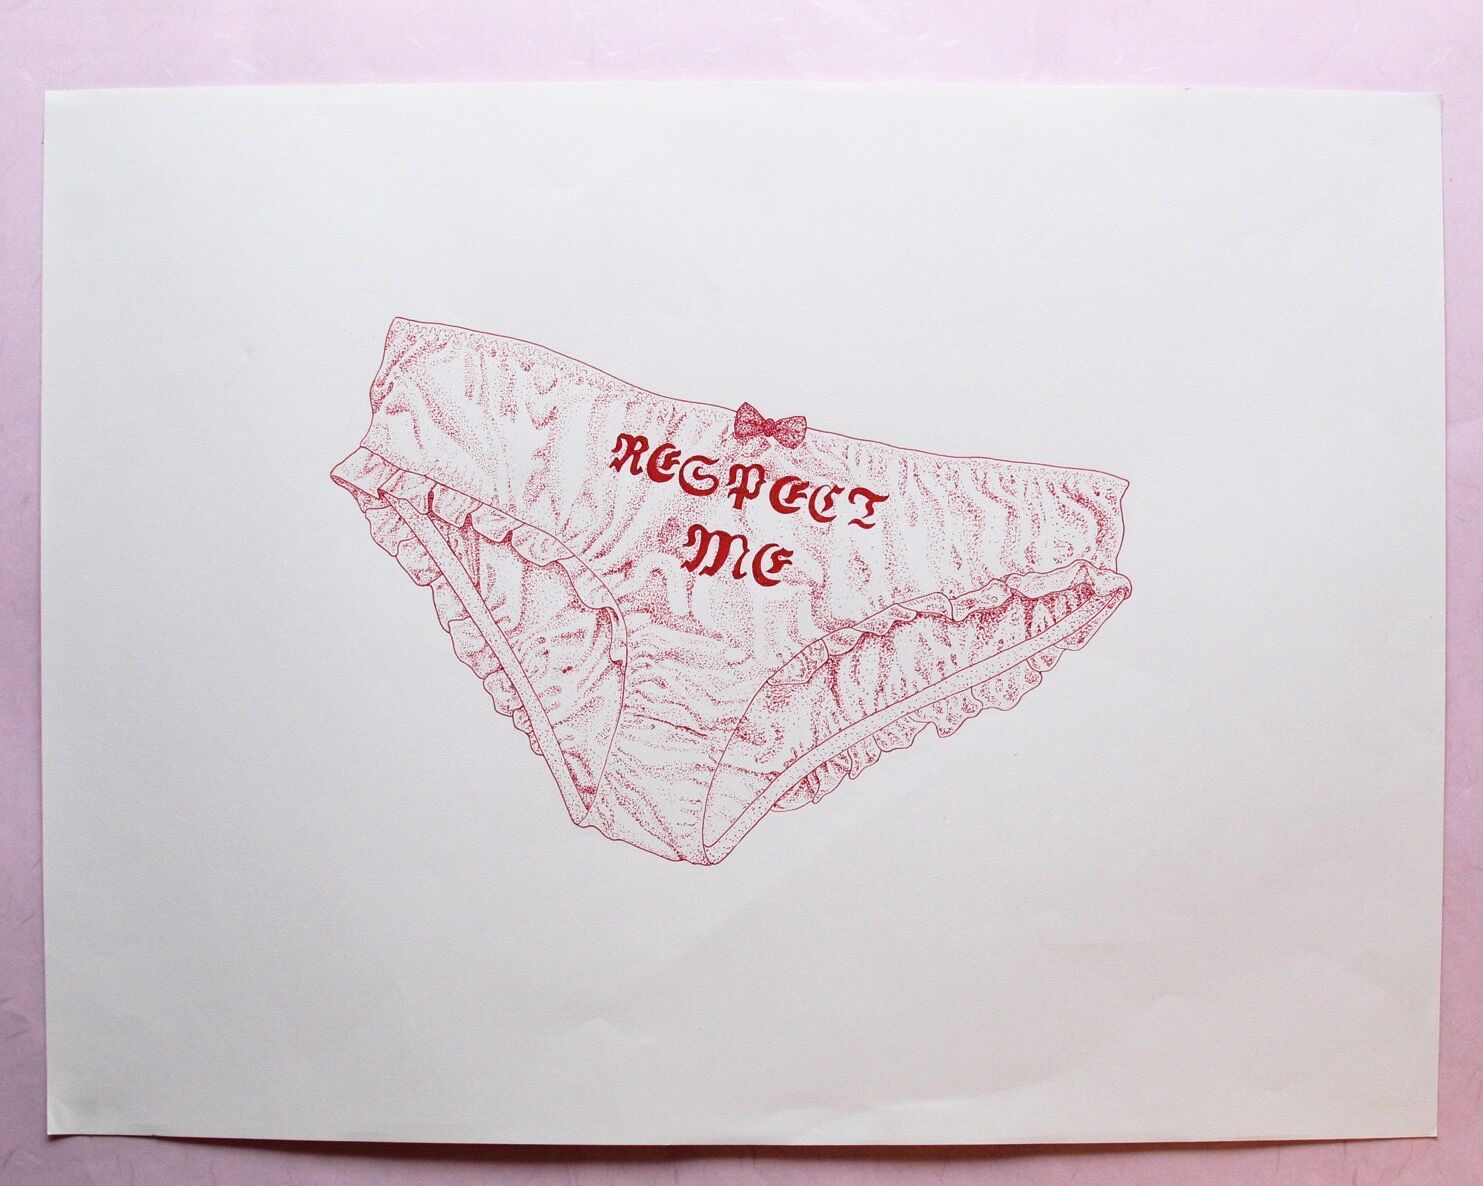 RESPECT
ME